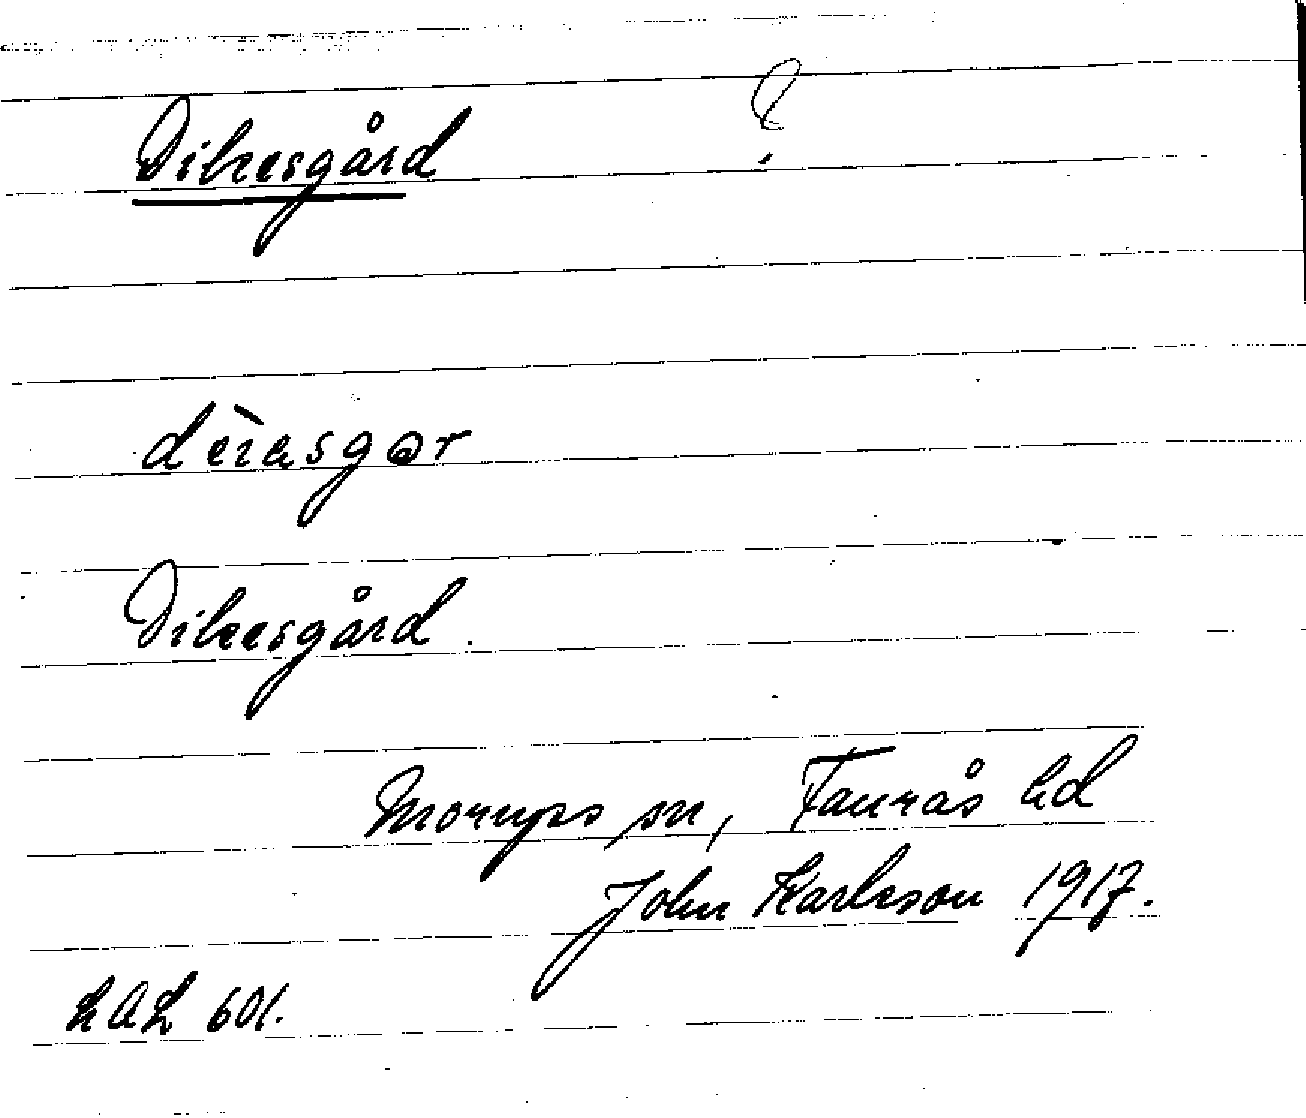 Dikesgård ?
Dikesgård.
Morups sn, Faurås hd
John Karlsson 1917.
LAL 601.